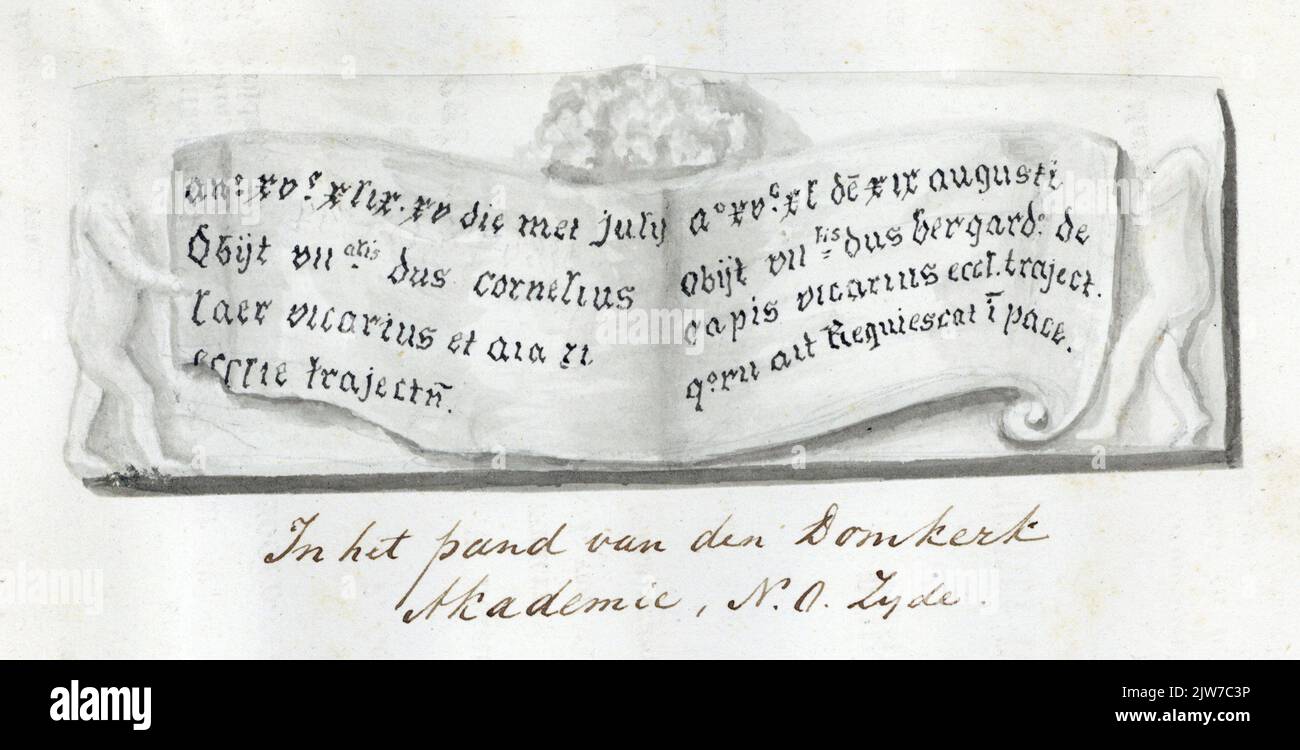 anº. xvᶜ. xlix. xv die met july
Obijt vnᵃˡⁱˢ dus cornelius
laer vicarius et aia xi
ecclie trajectn̄.
aº xvᶜ. xl dē xix augusti
Obijt vnˡⁱˢ dus bergardº. de
capis vicarius eccl. traject.
qºru aīt Requiescat ī pace.
In het pand van den Domkerk
Akademie, N. O. Zyde.
alamy
Image ID: 2JW7C3P
www.alamy.com